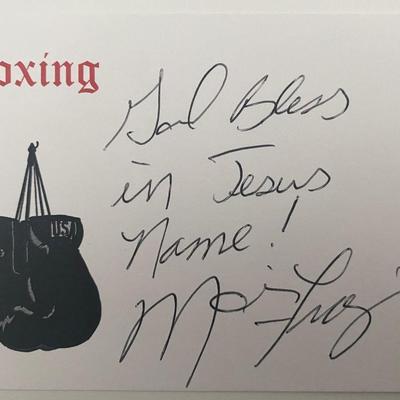 oxing
God Bless
in Jesus
Name!
USA